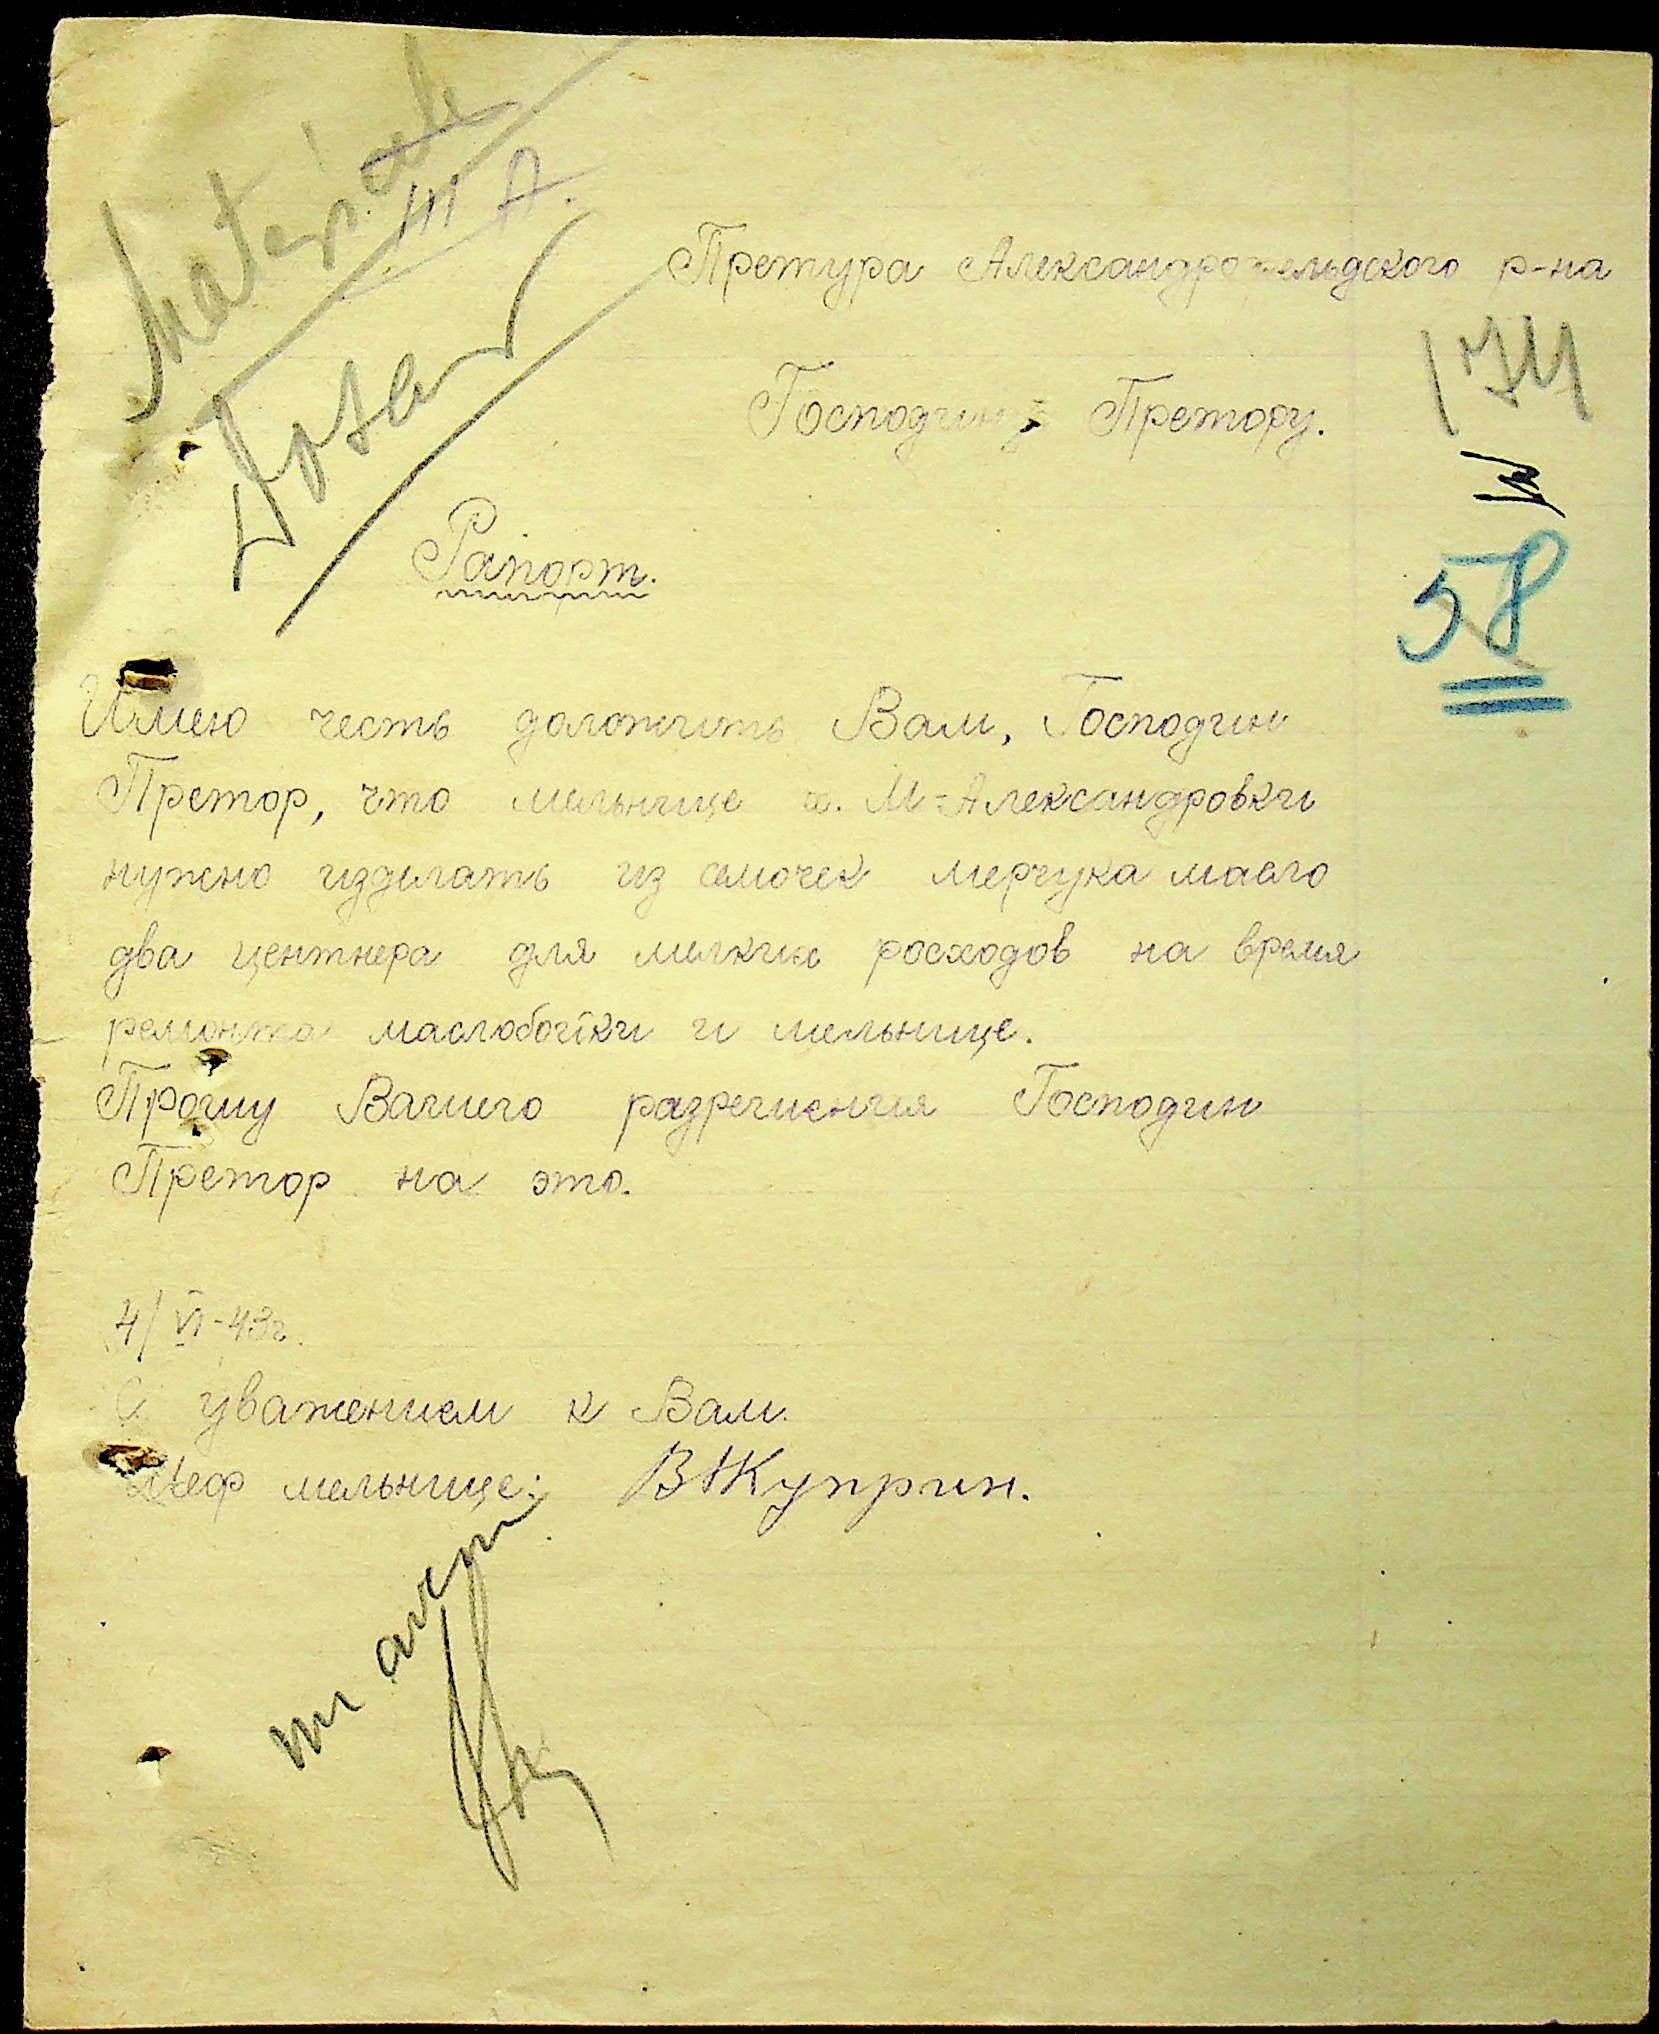 Dosar
Претура Александрофельдского р-на
174
Господину Претору.
58
Рапорт.
Имею честь доложить Вам, Господин
Претор, что мельнице х. М-Александровки
нужно изделать из семочек мерчука масло
два центнера для мелких росходов на время
ремонта маслобойки и мельнице.
Прошу Вашего разрешения Господин
Претор на это.
4/VI-43г.
С уважением к Вам.
Шеф мельнице: ВЖКуприн.